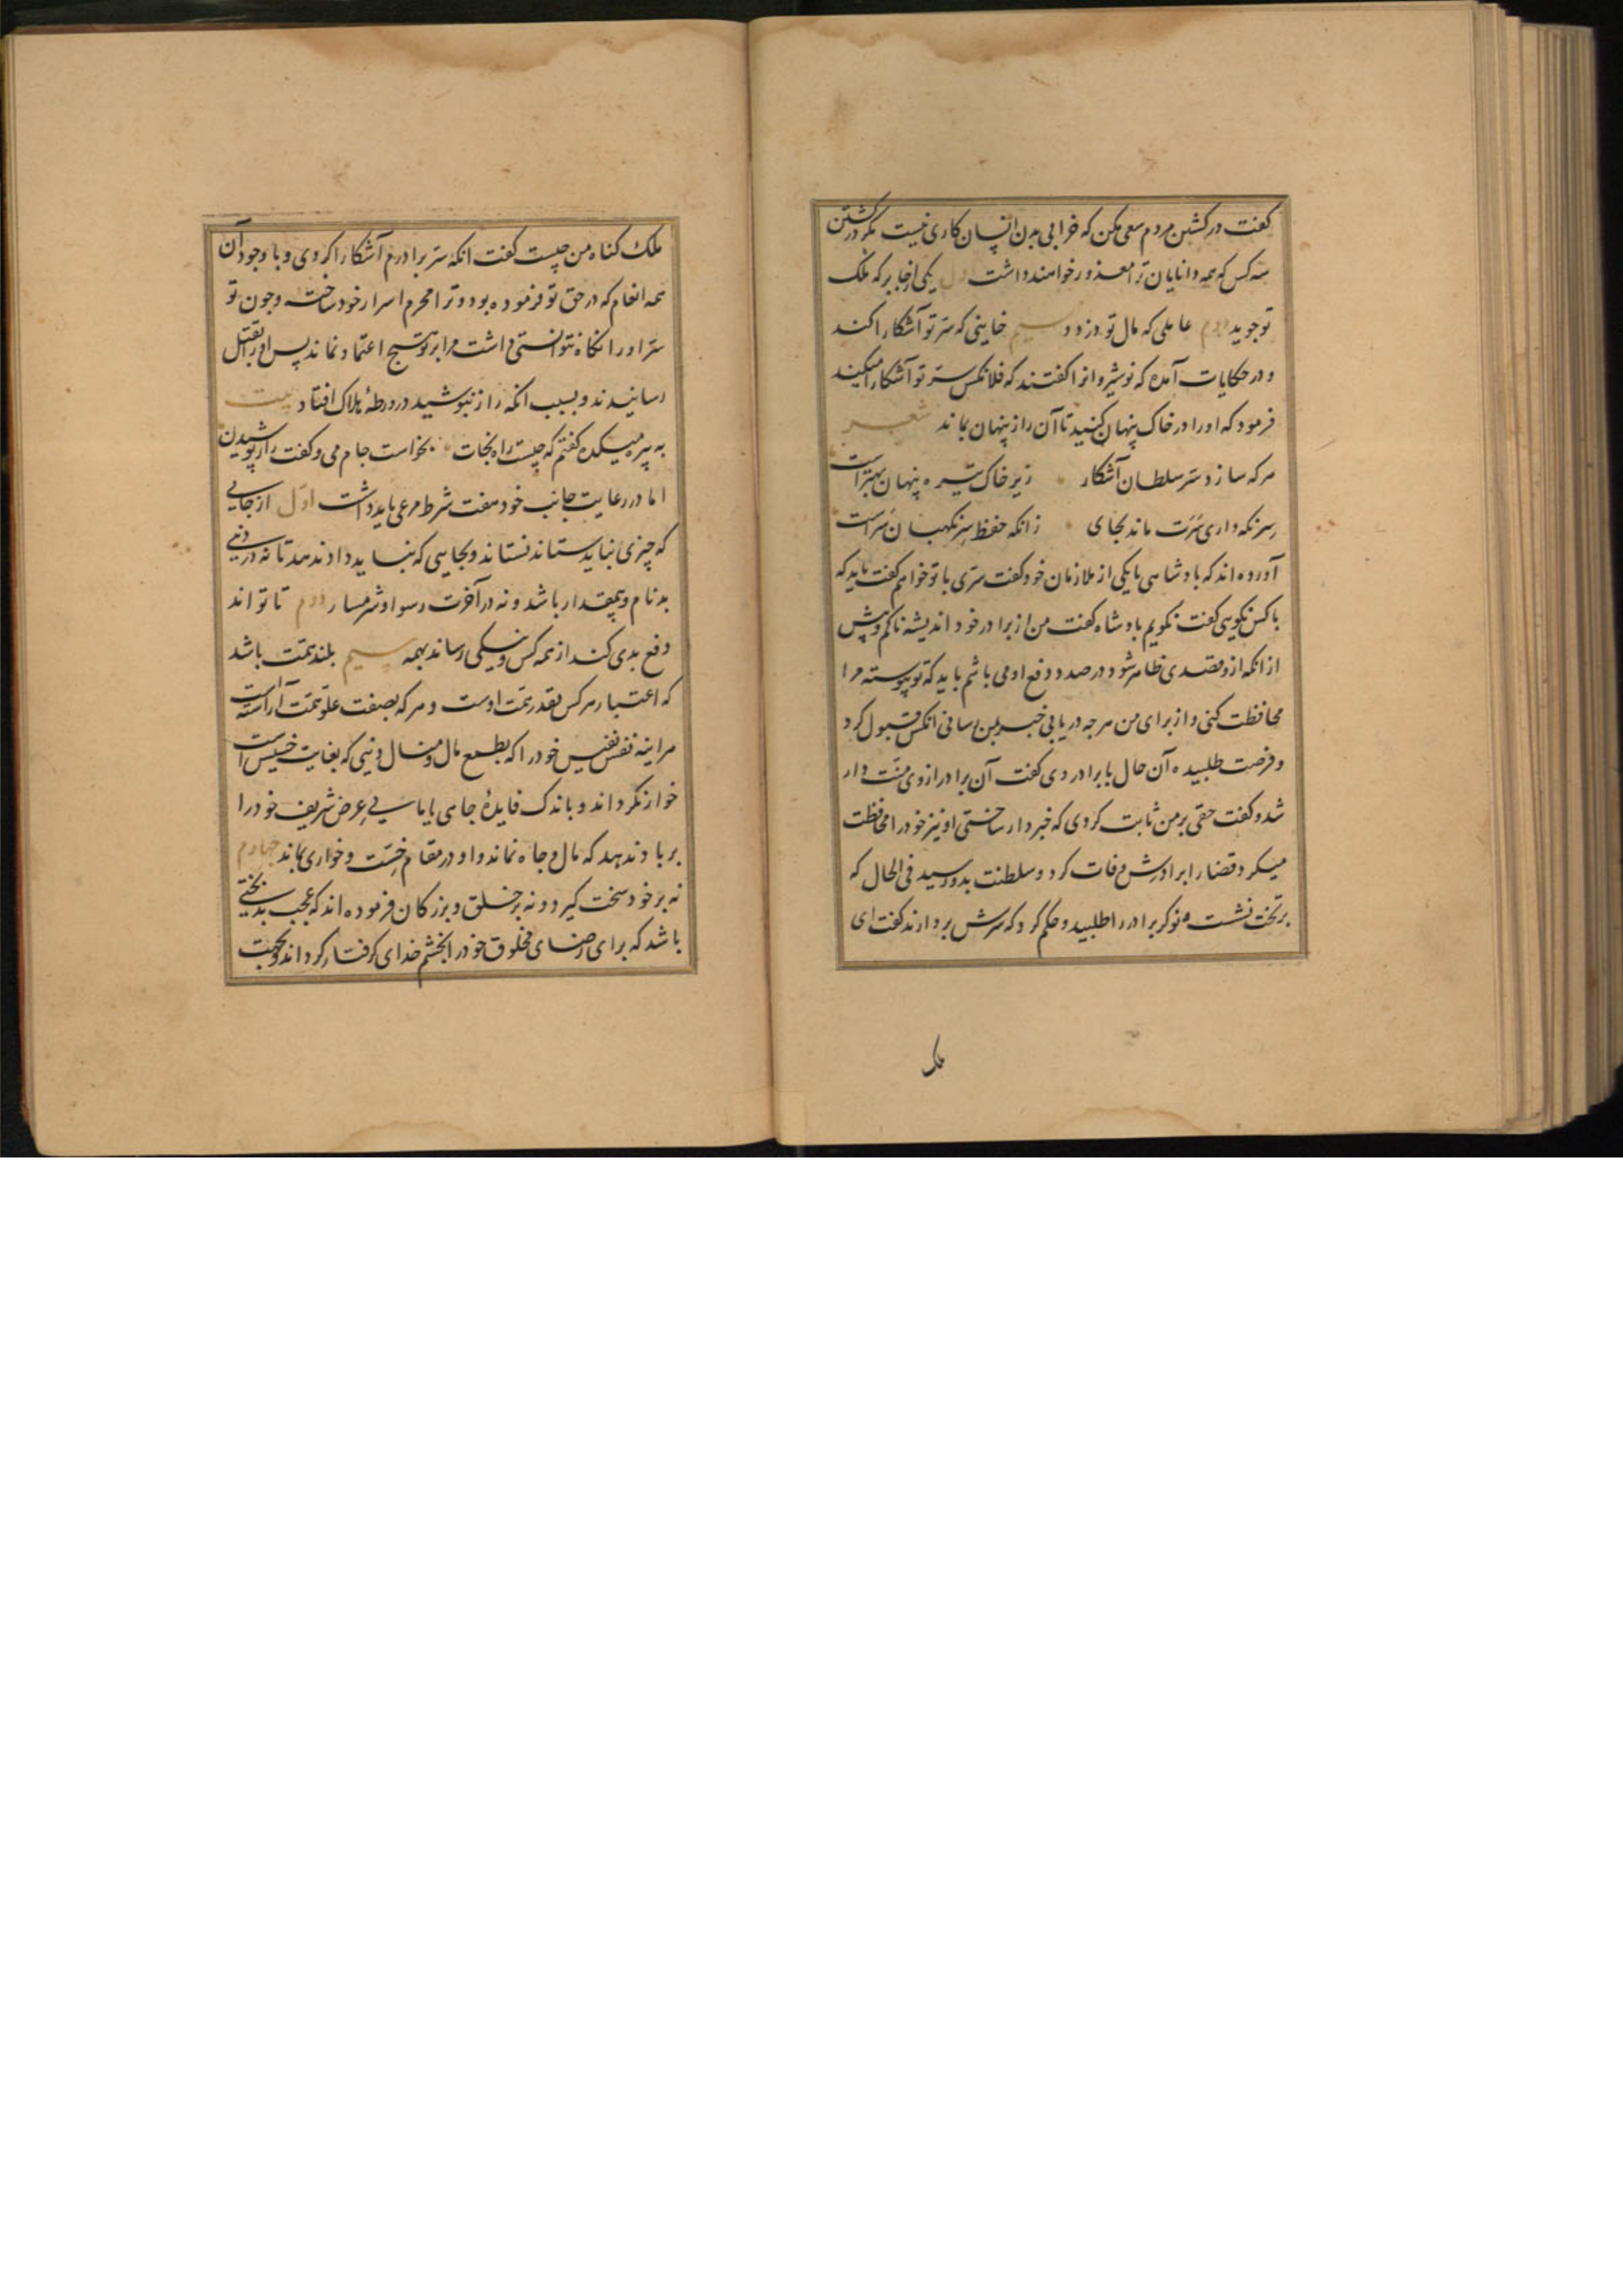 گفت در کشتن مردم سعی مکن که خرابی بدن انسان کاری نیست مگر در کشتن
سه کس که همه دانایان ترا معذور خواهند داشت اول یکی از جابر که ملک
تو جوید دوم عاملی که مال تو دزدد و سیم خاینی که سر تو آشکارا کند
و در حکایات آمده که نوشیروانرا گفتند که فلانکس سر تو آشکارا میکند
فرمود که او را در خاک پنهان کنید تا آن راز پنهان بماند شعر
هر که سازد سر سلطان آشکار زیر خاک تیره پنهان بهتر است
سر نگه داری سرت ماند بجای زانکه حفظ سر نگهبان سر است
آورده اند که پادشاهی با یکی از ملازمان خود گفت سری با تو خواهم گفت باید که
با کس نگویی گفت نگویم پادشاه گفت من از برادر خود اندیشه ناکم و پیش
از انکه ازو مقصدی ظاهر شود در صدد دفع او می باشم باید که تو پیوسته مرا
محافظت کنی و از برای من هر چه دریابی خبر بمن رسانی انکس قبول کرد
و فرصت طلبیده آن حال با برادر وی گفت آن برادر از وی منت دار
شد و گفت حقی بر من ثابت کردی که خبردار ساختی او نیز خود را محافظت
میکرد قضا را برادرش وفات کرد و سلطنت بدو رسید فی الحال که
بر تخت نشست نوکر برادر را طلبید و حکم کرد که سرش بردارند گفت ای
ملک
ملک گناه من چیست گفت انکه سر برادرم آشکارا کردی و با وجود آن
همه انعام که در حق تو فرموده بود و ترا محرم اسرار خود ساخت و چون تو
سر او را نگاه نتوانستی داشت مرا بر تو هیچ اعتماد نماند پس او را بقتل
رسانیدند و بسبب انکه راز نپوشید در ورطهٔ هلاک افتاد بیت
به پیر میکده گفتم که چیست راه نجات بخواست جام می و گفت راز پوشیدن
اما در رعایت جانب خود هفت شرط مرعی باید داشت اول از جایی
که چیزی نباید ستاند نستاند و بجایی که نباید داد ندهد تا نه در دنیی
بدنام و بیمقدار باشد و نه در آخرت رسوا و شرمسار دوم تا تواند
دفع بدی کند از همه کس و نیکی رساند بهمه سیم بلند همت باشد
که اعتبار هر کس بقدر همت اوست و هر که بصفت علو همت آراسته است
هر اینه نفس نفیس خود را که بطمع مال و منال دنیی که بغایت خسیس است
خوار نگرداند و باندک فایدهٔ جاهی یا مالی عرض شریف خود را
بر باد ندهد که مال و جاه نماند و او در مقام خست و خواری بماند چهارم
نه بر خود سخت گیرد و نه بر خلق و بزرگان فرموده اند که عجب بدبختی
باشد که برای رضای مخلوق خود را بخشم خدای گرفتار گرداند و بجهت